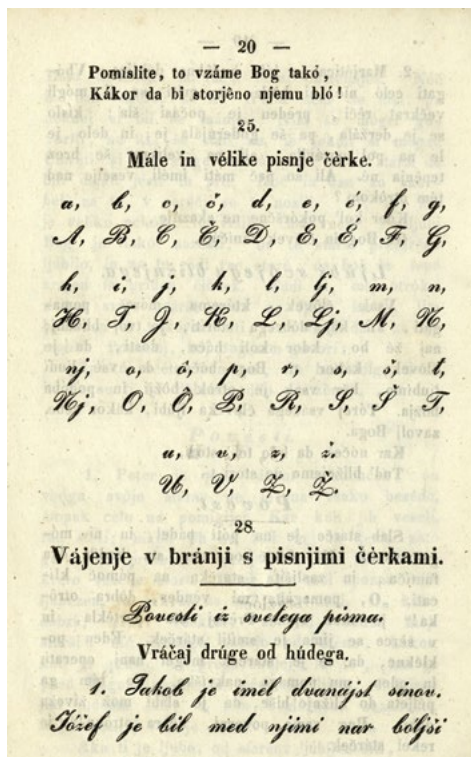 — 20 —
Pomíslite, to vzáme Bog takó,
Kákor da bi storjêno njemu bló!
25.
Mále in vélike pisnje čêrke.
a, b, c, č, d, e, é, f, g,
A, B, C, Č, D, E, É, F, G,
h, i, j, k, l, lj, m, n,
H, I, J, K, L, Lj, M, N,
nj, o, ô, p, r, s, š, t,
Nj, O, Ô, P, R, S, Š, T,
u, v, z, ž.
U, V, Z, Ž.
28.
Vájenje v bránji s pisnjimi čêrkami.
Povesti iz svetega pisma.
Vráčaj drúge od húdega.
1. Jakob je imêl dvanájst sinov.
Józef je bil med njimi nar bóljši